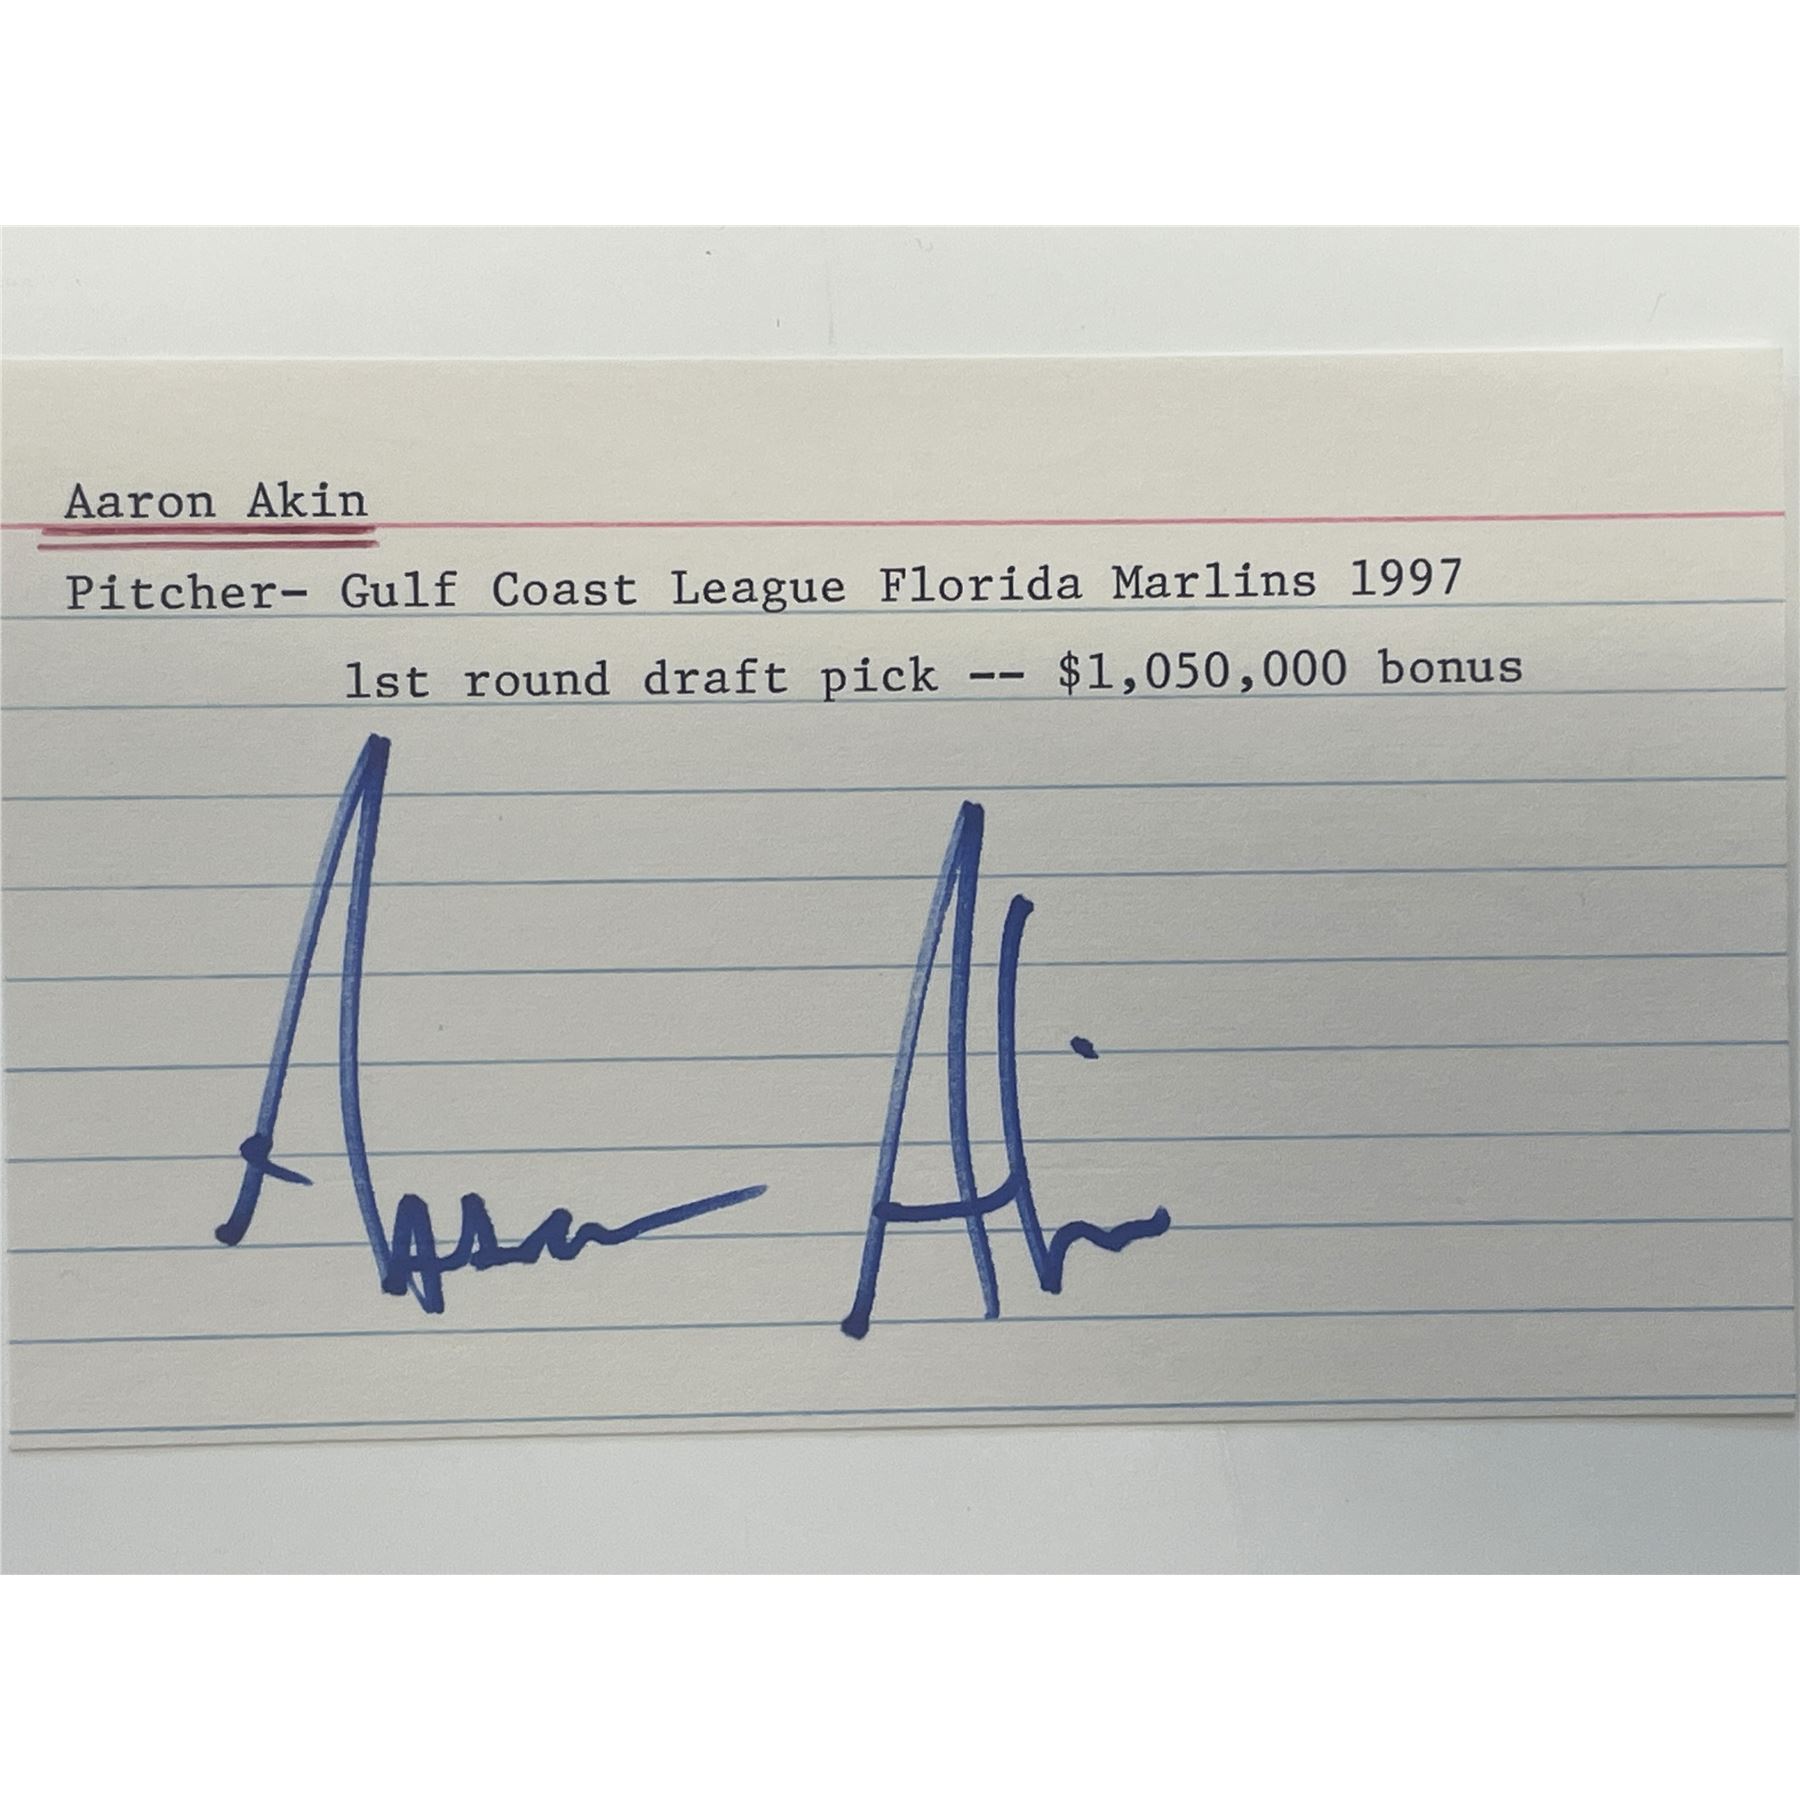 Aaron Akin
Pitcher- Gulf Coast League Florida Marlins 1997
1st round draft pick -- $1,050,000 bonus
Aaron Akin